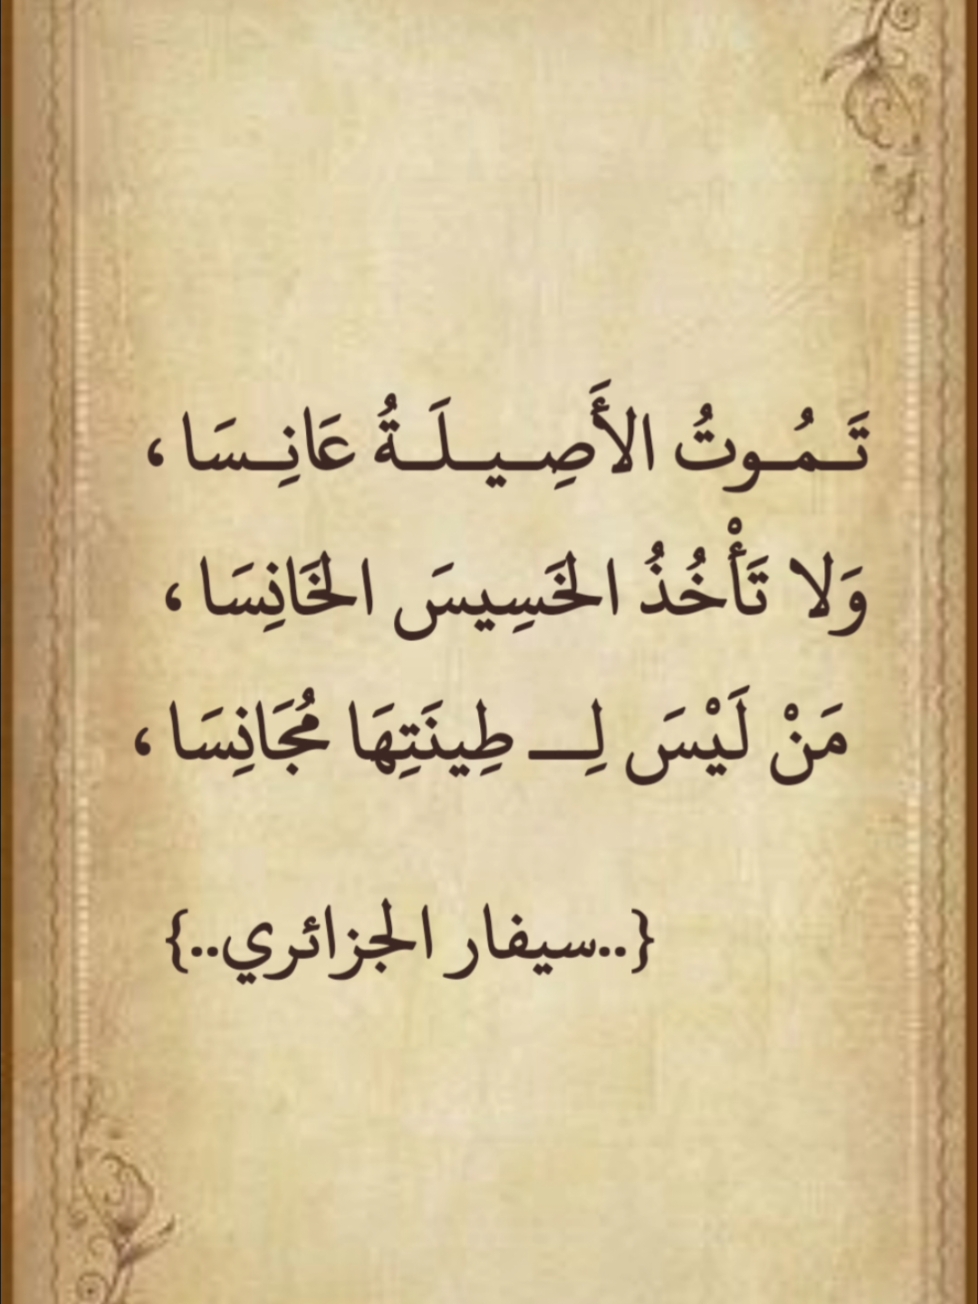 تَـمُـوتُ الأَصِـيـلَـةُ عَانِـسَا ،
وَلا تَأْخُذُ الخَسِيسَ الخَانِسَا ،
مَنْ لَيْسَ لِــ طِينَتِهَا مُجَانِسَا ،
{..سيفار الجزائري..}